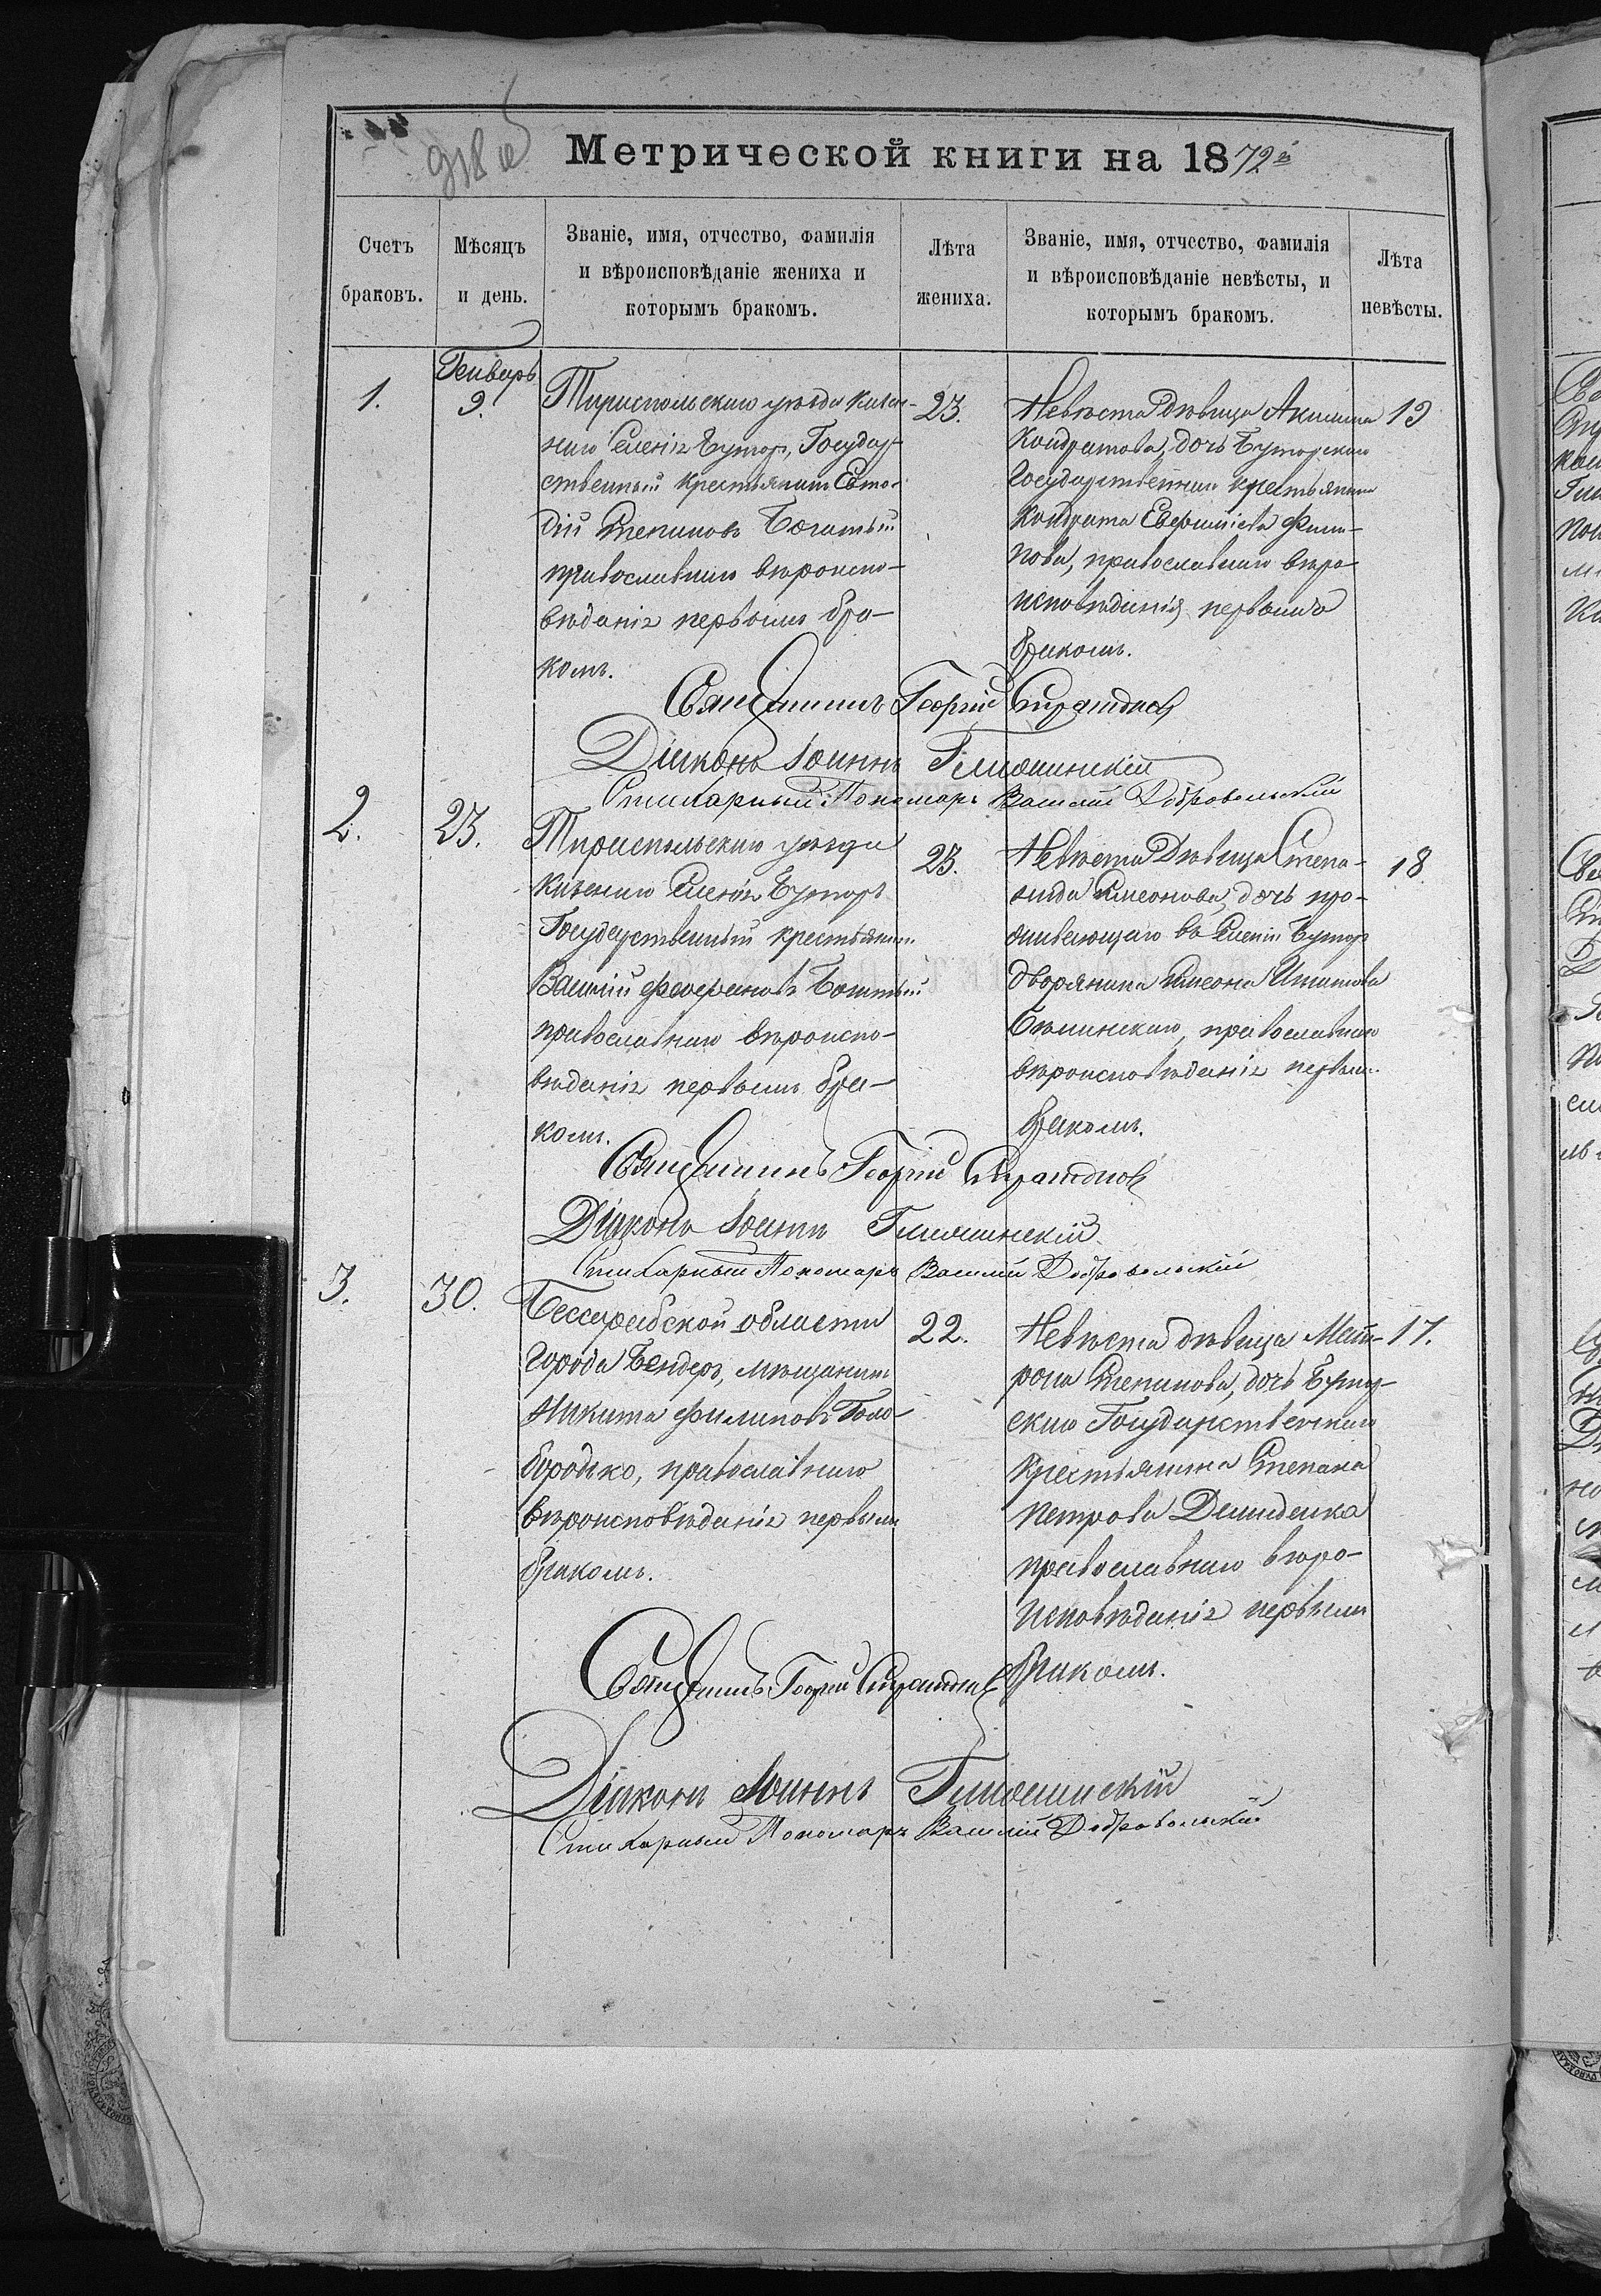 918 об
Метрической книги на 1872й
Счетъ браковъ.
Мѣсяцъ и день.
Званіе, имя, отчество, фамилія
и вѣроисповѣданіе жениха и
которымъ бракомъ.
Лѣта жениха.
Званіе, имя, отчество, фамилія
и вѣроисповѣданіе невѣсты, и
которымъ бракомъ.
Лѣта невѣсты.
1.
Генварь
9.
Тираспольскаго уѣзда казен-
наго Селенія Буторъ, Государ-
ственный крестьянинъ
Степановъ Богатый
православнаго вѣроиспо-
вѣданія первымъ бра-
комъ.
23.
Невѣста Дѣвица Акилина
Кондратова, дочь Буторскаго
Государственнаго крестьянина
Кондрата Фили-
пова, православнаго вѣро-
исповѣданія, первымъ
бракомъ.
19
Священникъ Георгій
Діаконъ Іоаннъ
Стихарный Пономарь Василій Добровольскій
2.
23.
Тираспольскаго уѣзда
казеннаго Селенія Буторъ
Государственный крестьянинъ
Василій Богатый
православнаго вѣроиспо-
вѣданія первымъ бра-
комъ.
23.
Невѣста Дѣвица Степа-
нида Симеонова, дочь про-
живающаго въ Селеніи Буторъ
дворянина Симеона Игнатова
православнаго
вѣроисповѣданія первымъ
бракомъ.
18.
Священникъ Георгій
Діаконъ Іоаннъ
Стихарный Пономарь Василій Добровольскій
3.
30.
Бессарабской области
города Бендеръ, мѣщанинъ
Никита Филиповъ Голо-
бородько, православнаго
вѣроисповѣданія первымъ
бракомъ.
22.
Невѣста дѣвица Мат-
рона Степанова, дочь Бутор-
скаго Государственнаго
крестьянина Степана
Петрова Демиденка
православнаго вѣро-
исповѣданія первымъ
бракомъ.
17.
Священникъ Георгій
Діаконъ Іоаннъ
Стихарный Пономарь Василій Добровольскій